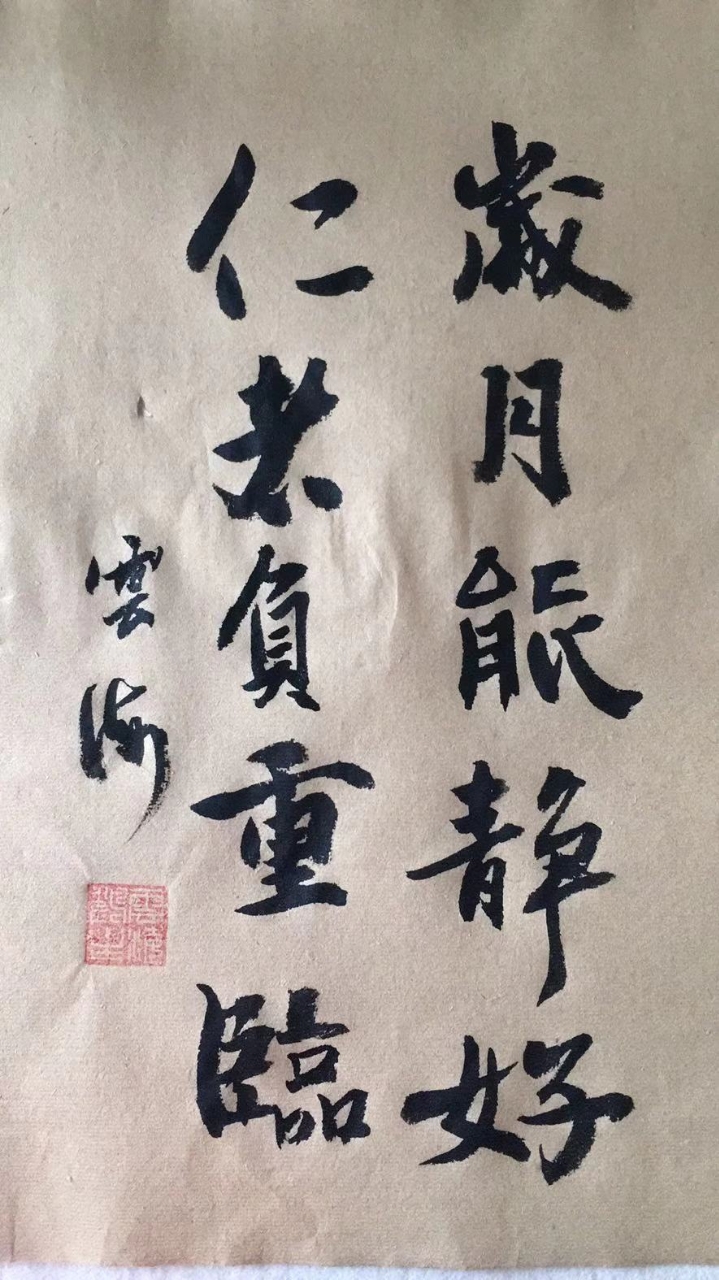 歲月能静好
仁者負重臨
雲海